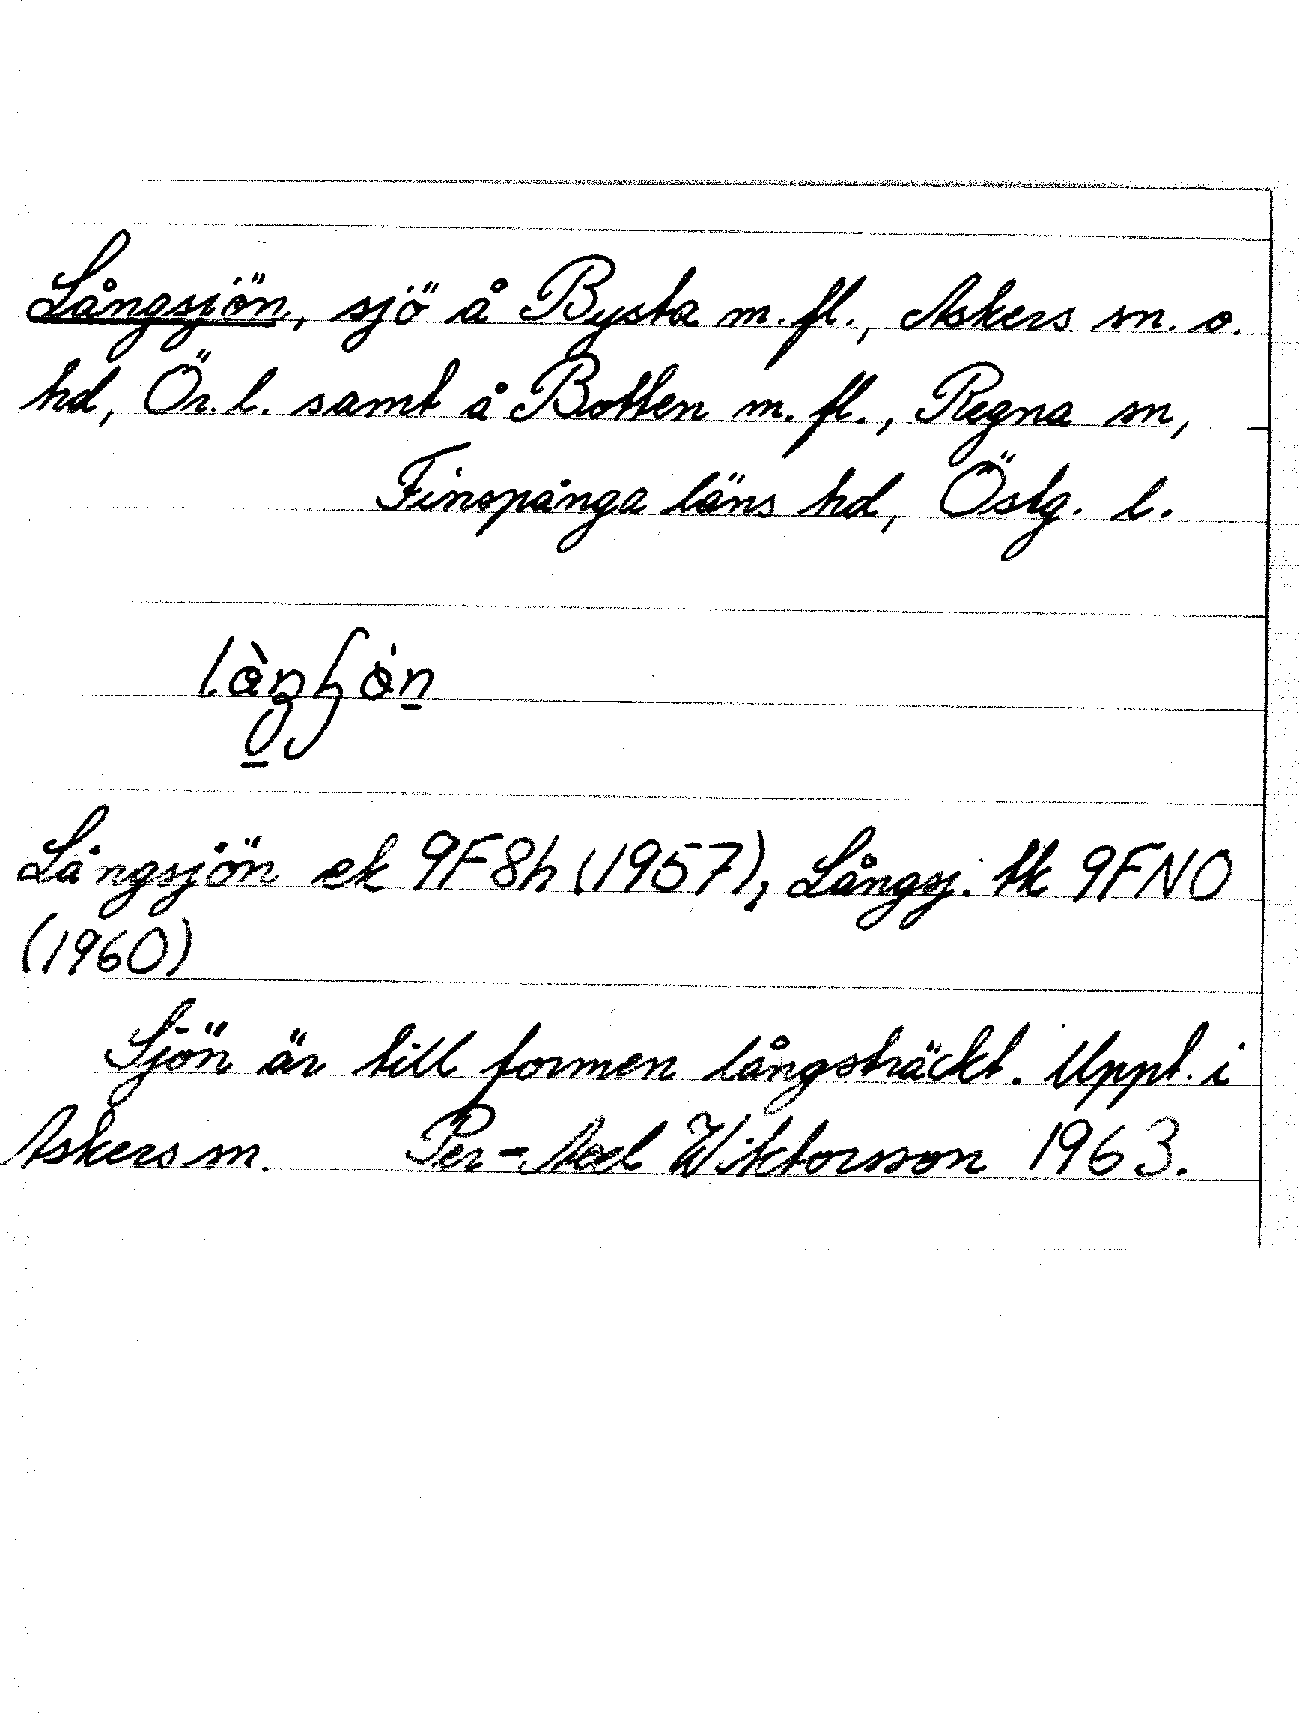 Långsjön, sjö å Bysta m. fl., Askers sn. o.
hd, Ör. l. samt å Botten m. fl., Regna sn,
Finspånga läns hd, Östg. l.
Långsjön ek 9F8h (1957), Långsj. tk 9FNO
(1960)
Sjön är till formen långsträckt. Uppt. i
Asker sn. Per-Axel Wiktorsson 1963.